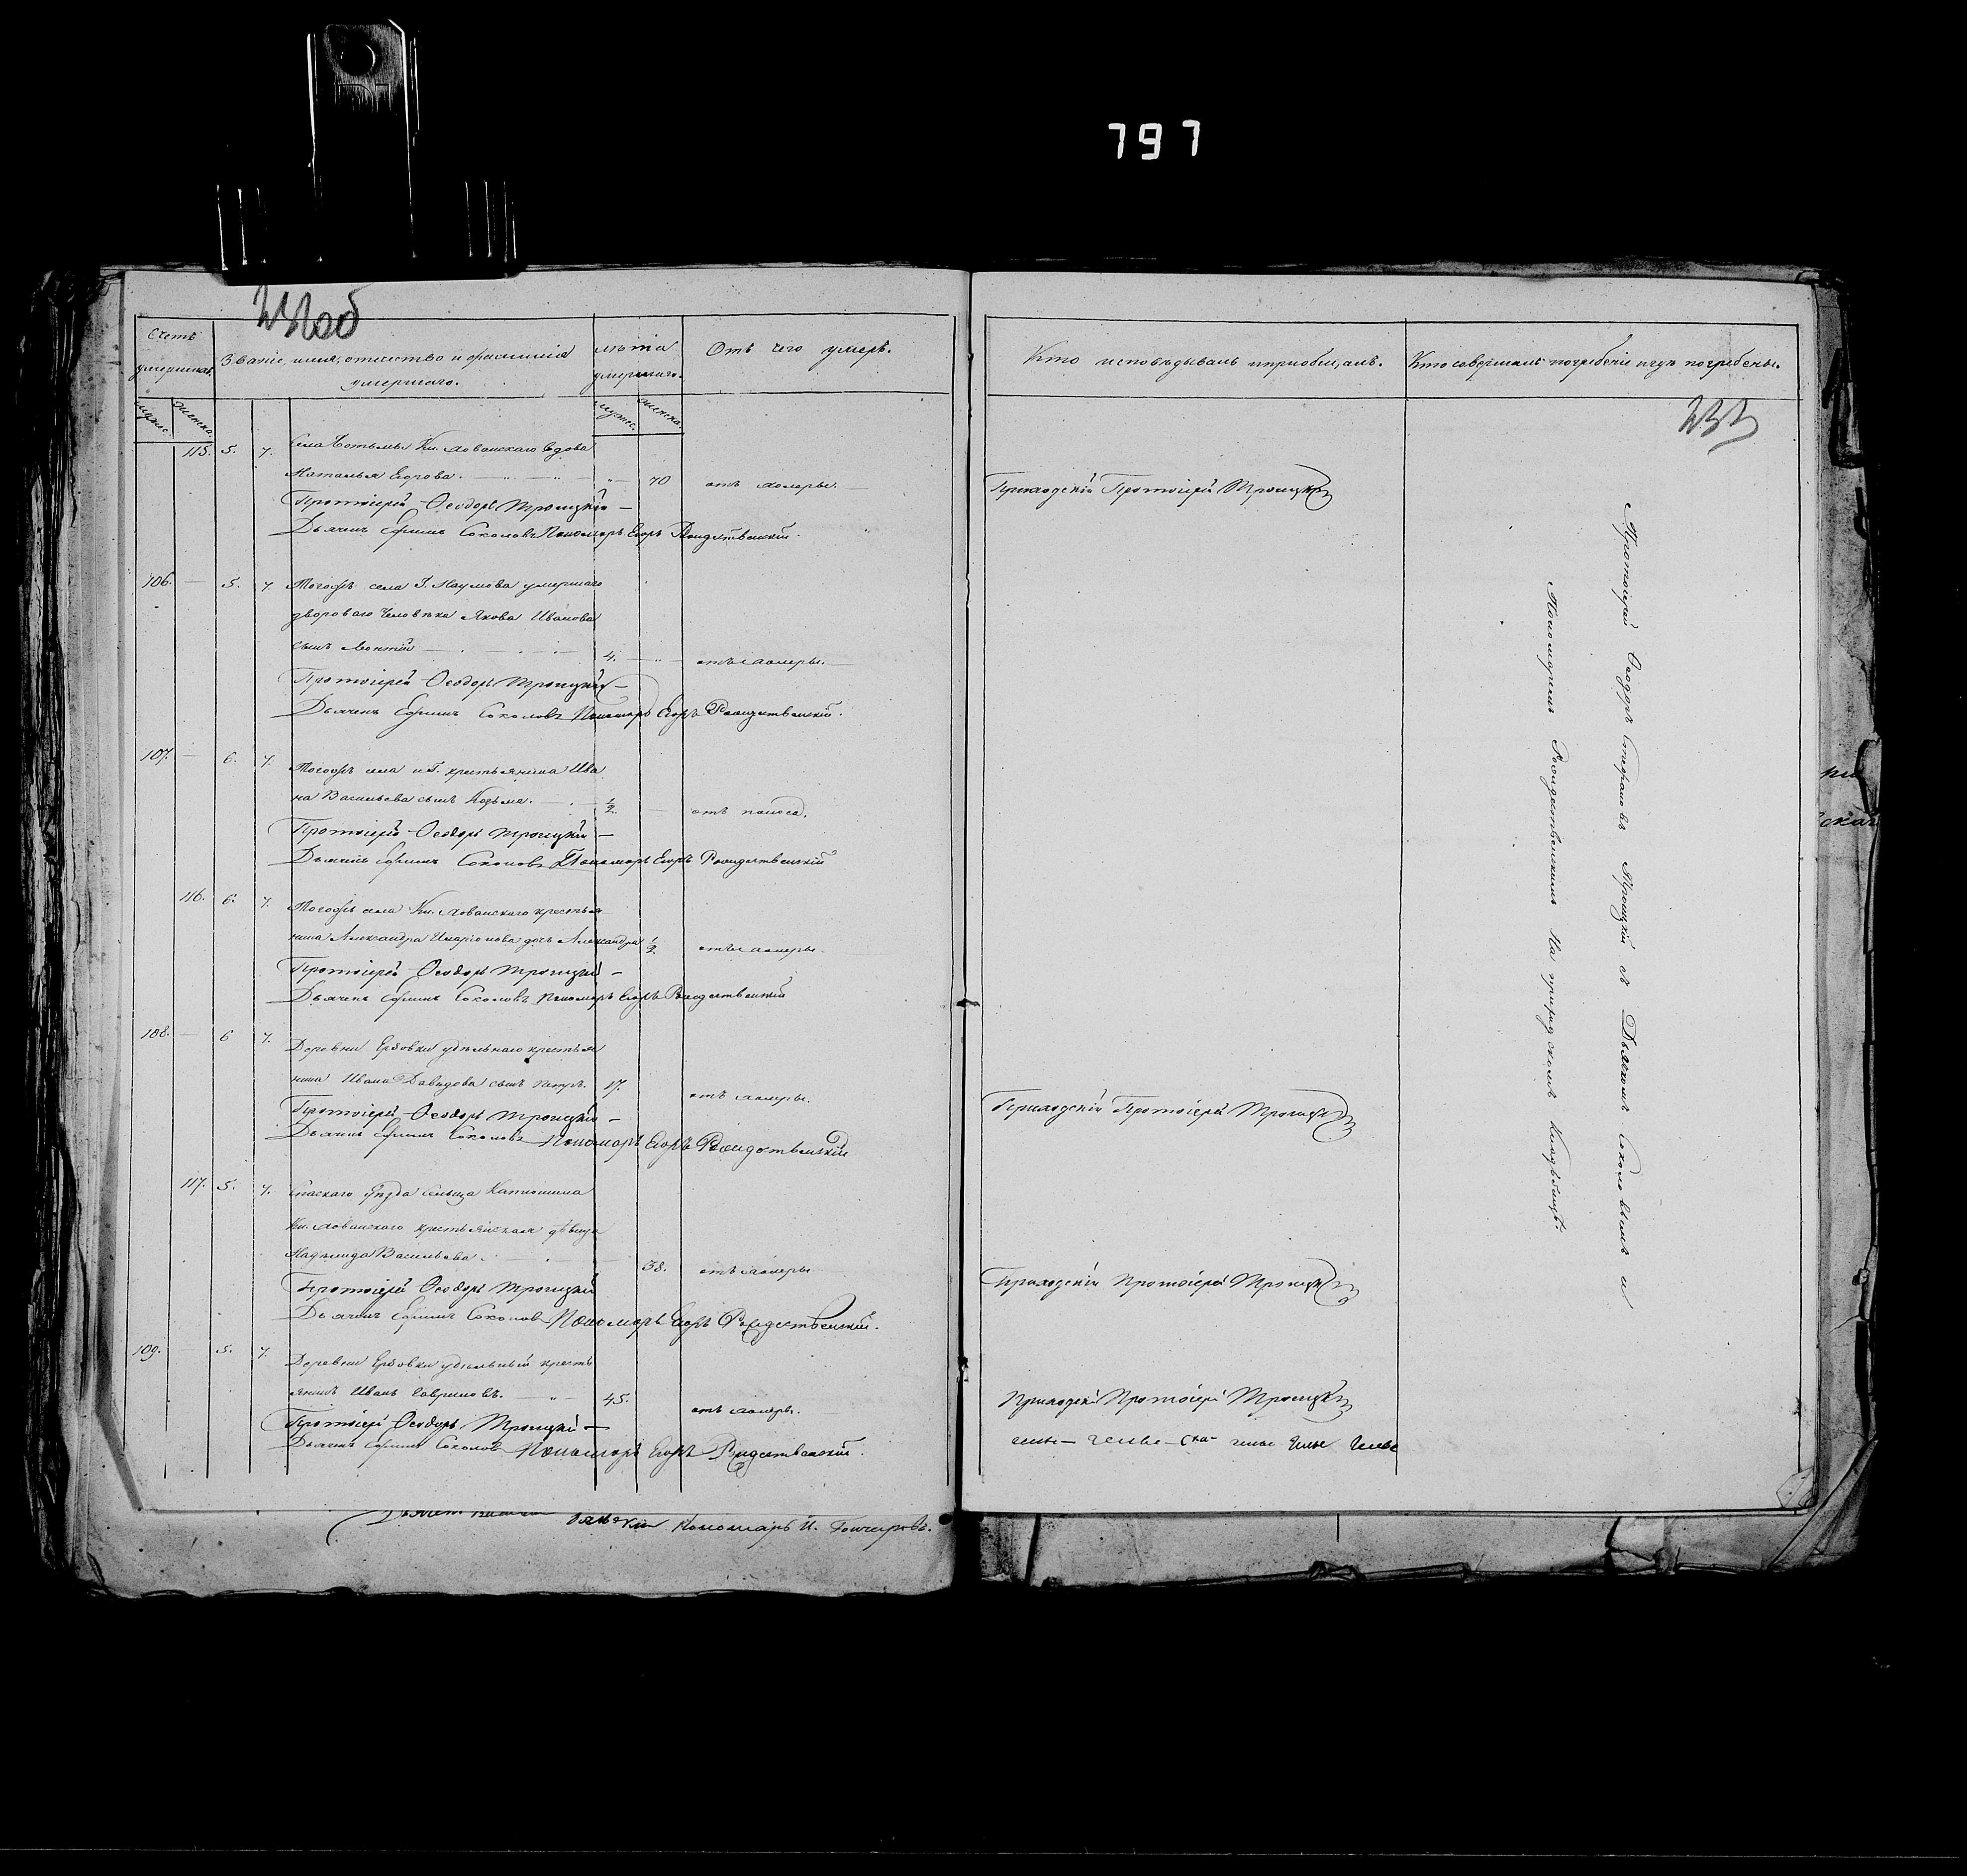 797
Счетъ умершихъ.
Званіе, имя, отчество и фамилія умершаго.
лѣта умершаго.
Отъ чего умеръ.
Кто исповѣдывалъ и пріобщалъ.
Кто совершалъ погребеніе и гдѣ погребены.
мужес. женска. мужс. женска.
115. 5. 7. Села Кн. Хованскаго вдова
Наталья Егорова. 70 отъ холеры.
Протоіерей Ѳеодоръ Троицкій
Дьячекъ Ефимъ Соколовъ Пономарь Егоръ Рождественскій.
Приходскій Протоіерей Троицкій
106. 5. 7. Тогожъ села Г. Наумова умершаго
двороваго человѣка Якова Иванова
сынъ Леонтій 4. отъ холеры.
Протоіерей Ѳеодоръ Троицкій
Дьячекъ Ефимъ Соколовъ Пономарь Егоръ Рождественскій.
107. 6. 7. Тогожъ села и Г. крестьянина Ива
на Васильева сынъ Козьма. 1/2 отъ поноса.
Протоіерей Ѳеодоръ Троицкій
Дьячекъ Ефимъ Соколовъ Пономарь Егоръ Рождественскій
116. 6. 7. Тогожъ села Кн. Хованскаго крестья
нина Александра Иларіонова дочь Александра 1/2 отъ холеры.
Протоіерей Ѳеодоръ Троицкій
Дьячекъ Ефимъ Соколовъ Пономарь Егоръ Рождественскій
108. 6 7. Деревни удѣльнаго крестья
нина Ивана Давидова сынъ Петръ. 17. отъ холеры.
Протоіерей Ѳеодоръ Троицкій
Дьячекъ Ефимъ Соколовъ Пономарь Егоръ Рождественскій
Приходскій Протоіерей Троицкій
117. 5. 7. Спаскаго уѣзда сельца
Кн. Хованскаго крестьянская дѣвица
Надежда Васильева. 38. отъ холеры
Протоіерей Ѳеодоръ Троицкій
Дьячекъ Ефимъ Соколовъ Пономарь Егоръ Рождественскій.
Приходскій Протоіерей Троицкій
109. 5. 7. Деревни удѣльный кресть
янинъ Иванъ Гавриловъ. 45. отъ холеры.
Протоіерей Ѳеодоръ Троицкій
Дьячекъ Ефимъ Соколовъ Пономарь Егоръ Рождественскій.
Приходскій Протоіерей Троицкій
Протоіерей Ѳеодоръ Стефановъ Троицкій съ Дьячкомъ Соколовымъ и
Пономаремъ Рождественскимъ На приходскомъ Кладбищѣ.
Пономарь И. Гончаровъ.